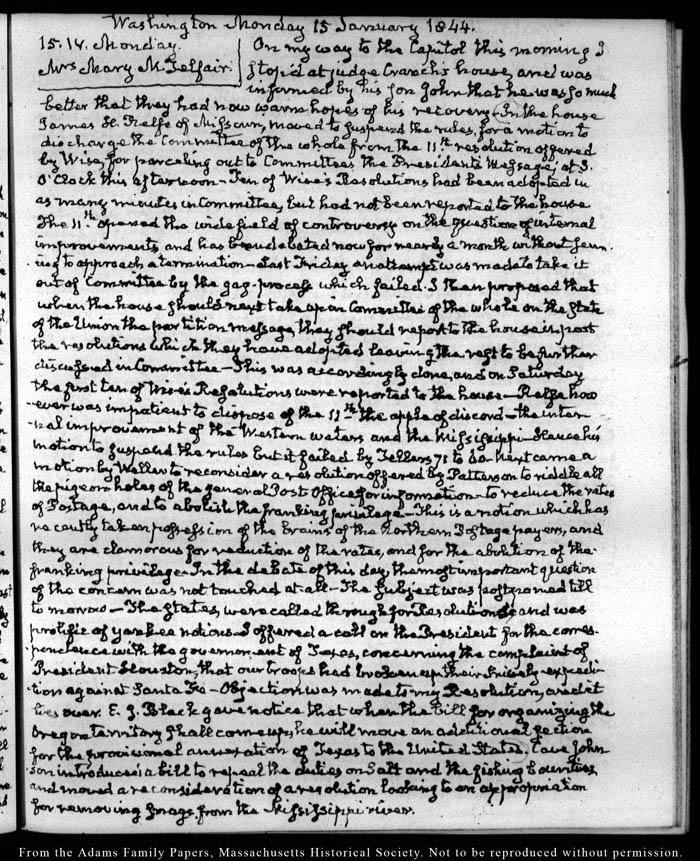 Washington Monday 15 January 1844.
15. IV. Monday.
Mrs Mary M. Telfair.
On my way to the Capitol this morning I
stop'd at judge Cranch's house, and was
informed by his son John that he was so much
better that they had now warm hopes of his recovery—In the house
James H. Relfe of Missouri, moved to suspend the rules, for a motion to
discharge the Committee of the whole from the 11th resolution offered
by Wise, for parceling out to Committees the President's Message, at 3.
O'Clock this afternoon—Ten of Wise's Resolutions had been adopted in
as many minutes in Committee, but had not been reported to the house
The 11th opened the wide field of controversy on the question of internal
improvements and has been debated now for nearly a month without seem-
ing to approach a termination—Last Friday an attempt was made to take it
out of Committee by the gag-process which failed. I then proposed that
when the house should next take up in Committee of the whole on the State
of the Union the partition message, they should report to the house in part
the resolutions which they have adopted leaving the rest to be further
discussed in Committee—This was accordingly done, and on Saturday
the first ten of Wise's Resolutions were reported to the house—Relfe how-
ever was impatient to dispose of the 11th the apple of discord—the inter-
nal improvement of the Western waters and the Mississippi—Hence his
motion to suspend the rules but it failed by Tellers 71 to 60. Next came a
motion by Weller to reconsider a resolution offered by Patterson to riddle all
the pigeon holes of the general Post Office for information—to reduce the rates
of Postage, and to abolish the franking privilege—This is a notion which has
recently taken possession of the brains of the Northern Postage payers, and
they are clamorous for reduction of the rates, and for the abolition of the
franking privilege—In the debate of this day, the most important question
of the concern was not touched at all—The subject was postponed till
to morrow—The States, were called through for Resolutions; and was
prolific of yankee notions—I offered a call on the President for the corres-
pondence with the government of Texas, concerning the complaint of
President Houston, that our troops had broken up their thievy expedi-
tion against Santa Fe—Objection was made to my Resolution, and it
lies over. E. J. Black gave notice that when the bill for organizing the
Oregon territory shall come up, he will move an additional section
for the provisional annexation of Texas to the United States. Cave John-
son introduces a bill to repeal the duties on Salt and the fishing bounties,
and moved a reconsideration of a resolution looking to an appropriation
for removing snags from the Mississippi river.
From the Adams Family Papers, Massachusetts Historical Society. Not to be reproduced without permission.